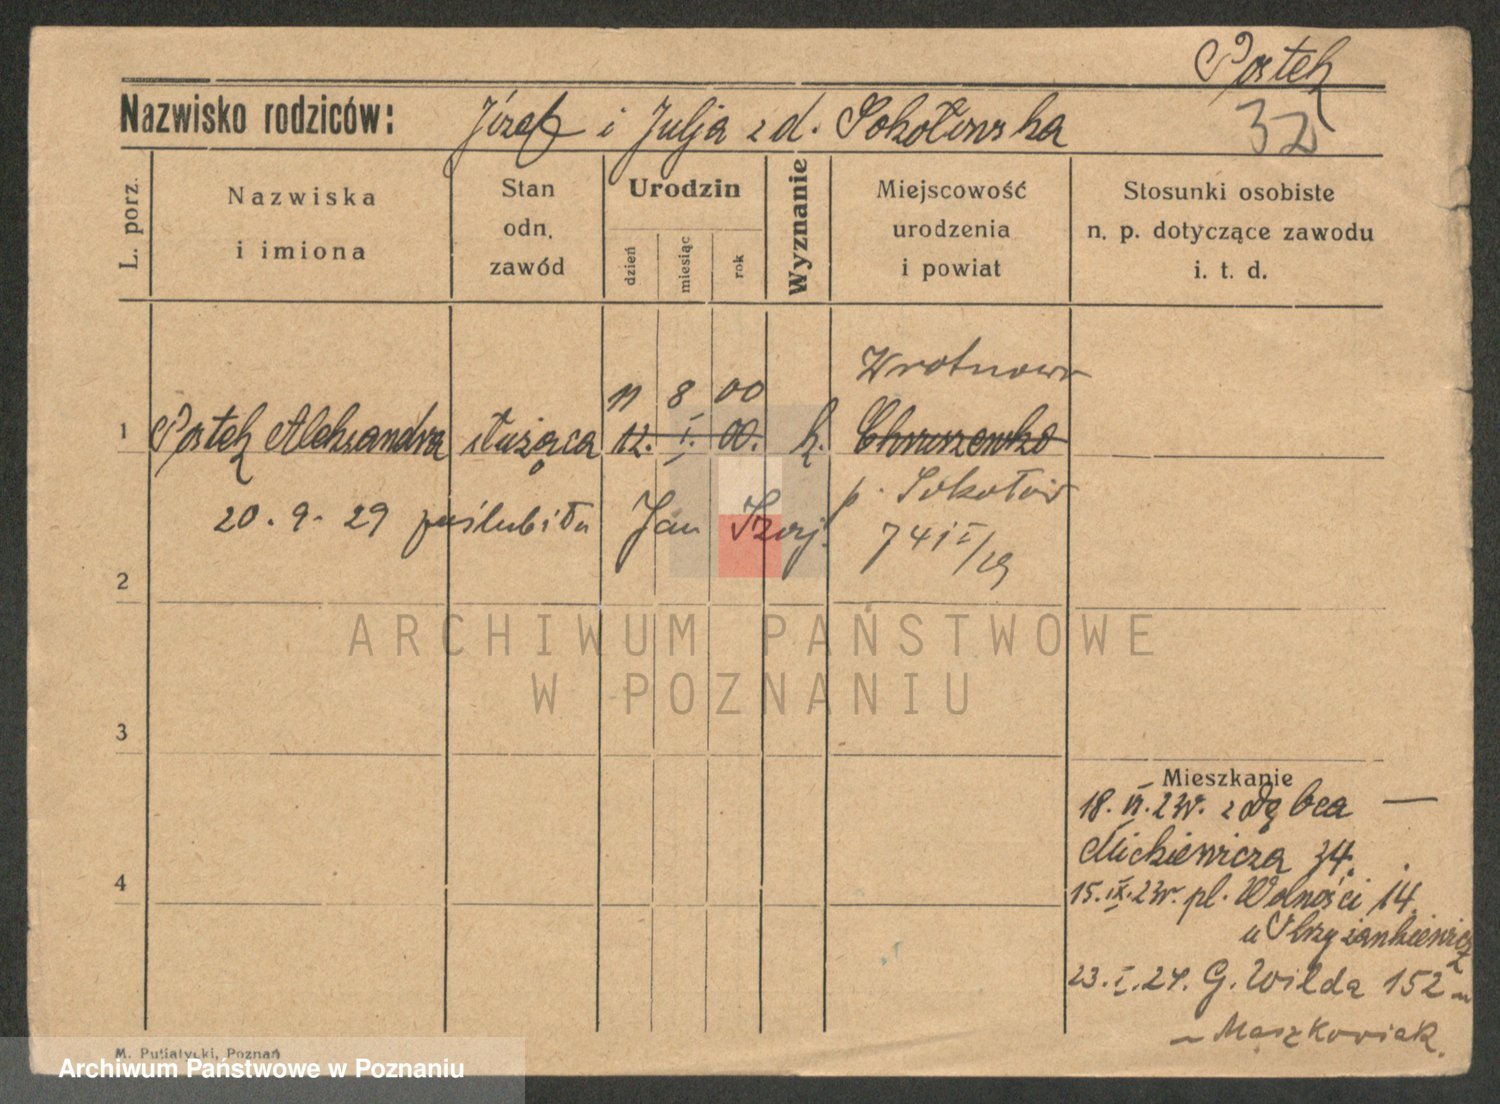 Postek
Nazwisko rodziców: Józef i Julja z d. Sokołowska
32
L. porz.
Nazwiska
i imiona
Stan
odn.
zawód
Urodzin
dzień
miesiąc
rok
Wyznanie
Miejscowość
urodzenia
i powiat
Stosunki osobiste
n. p. dotyczące zawodu
i. t. d.
11 8 00 Wrotnow
1 Postek Aleksandra służąca 12. I. 00. k. Chruszewko
p. Sokołów
20. 9. 29 poślubiła Jan Szorj.
741 I/29
2
3
4
Mieszkanie
18. VI. 23r. z Dębca —
Mickiewicza 34.
15. IX. 23r. pl. Wolności 14.
u
23. I. 24. G. Wilda 152
Maszkowiak.
M. Putiatycki, Poznań
ARCHIWUM PAŃSTWOWE
W POZNANIU
Archiwum Państwowe w Poznaniu